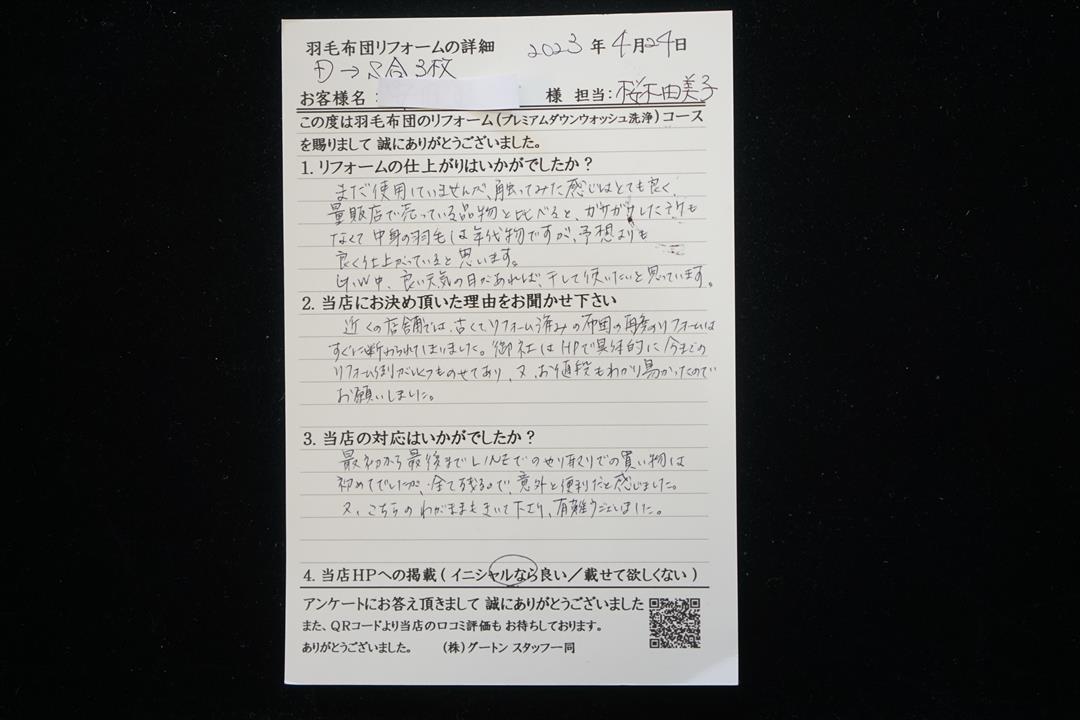 羽毛布団リフォームの詳細 2023年4月24日
D→S合3枚
お客様名: 様 担当:桜木由美子
この度は羽毛布団のリフォーム(プレミアムダウンウォッシュ洗浄)コース
を賜りまして 誠にありがとうございました。
1. リフォームの仕上がりはいかがでしたか?
まだ使用していませんが、触ってみた感じはとても良く、
量販店で売っている品物と比べると、ガサガサした
なくて中身の羽毛は年代物ですが、予想よりも
良く仕上がっていると思います。
G.W中、良い天気の日があれば、干して使いたいと思っています。
2. 当店にお決め頂いた理由をお聞かせ下さい
近くの店舗では、古くて、リフォーム済みの布団の再度のリフォームは
すぐに断わられてしまいました。御社はHPで具体的に今までの
リフォーム例がいくつものせてあり、又、お値段もわかり易かったので
お願いしました。
3. 当店の対応はいかがでしたか?
最初から最後までLINEでのやり取りでの買い物は
初めてでしたが、全て残るので、意外と便利だと感じました。
又、こちらのわがままもきいて下さり、有難うございました。
4. 当店HPへの掲載 ( イニシャルなら良い/載せて欲しくない )
アンケートにお答え頂きまして 誠にありがとうございました
また、QRコードより当店の口コミ評価も お待ちしております。
ありがとうございました。 (株)グートン スタッフ一同